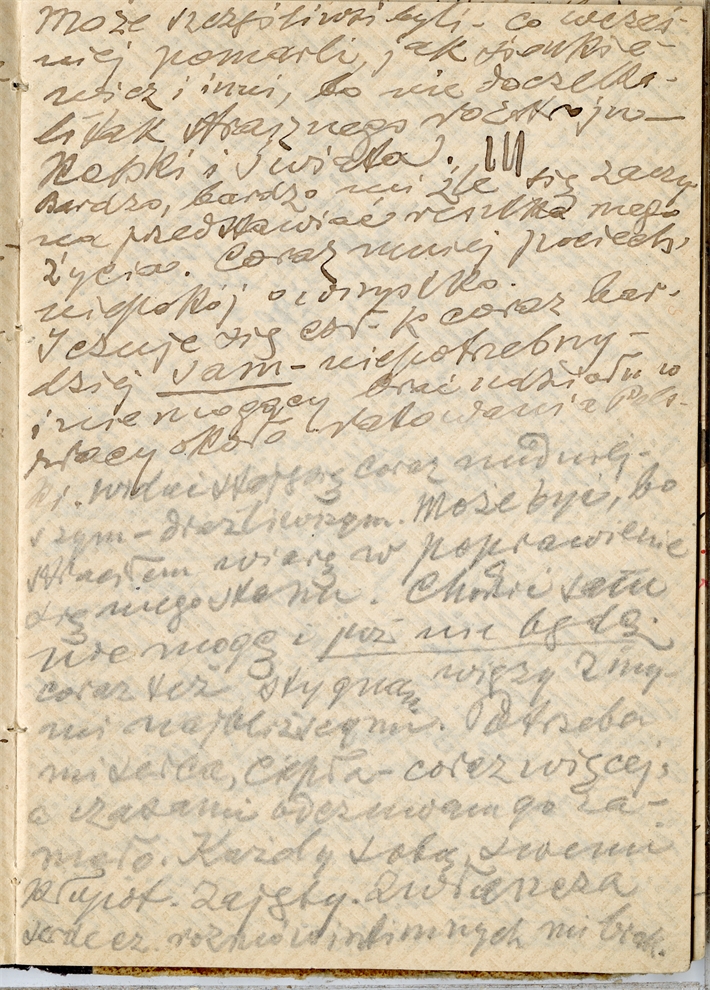 Może szczęśliwsi byli - co wcześ-
niej pomarli, jak Sienkie-
wicz i inni, bo nie doczeka-
li tak strasznego rozstroju
Polski i Świata. III
Bardzo, bardzo mi źle się zaczy
na przedstawiać resztka mego
życia. Coraz mniej pociech,
niepokój o wszystko.
czuję się coraz bar-
dziej sam - niepotrzebny -
i nie mogący brać udziału w
pracy około ratowania Pols-
ki. coraz nudniej-
szym - drażliwszym. Może być, bo
straciłem wiarę w poprawienie
się mego stanu. Chodzić sam
nie mogę i już nie będę.
coraz też stygną więzy z my-
mi najbliższymi. Potrzeba
mi serca, ciepła - coraz więcej,
a czasami odczuwam go za-
mało. Każdy sobą, swemi
kłopot. zajęty. Zwłaszcza
serdecz. rozmów intimnych mi brak.